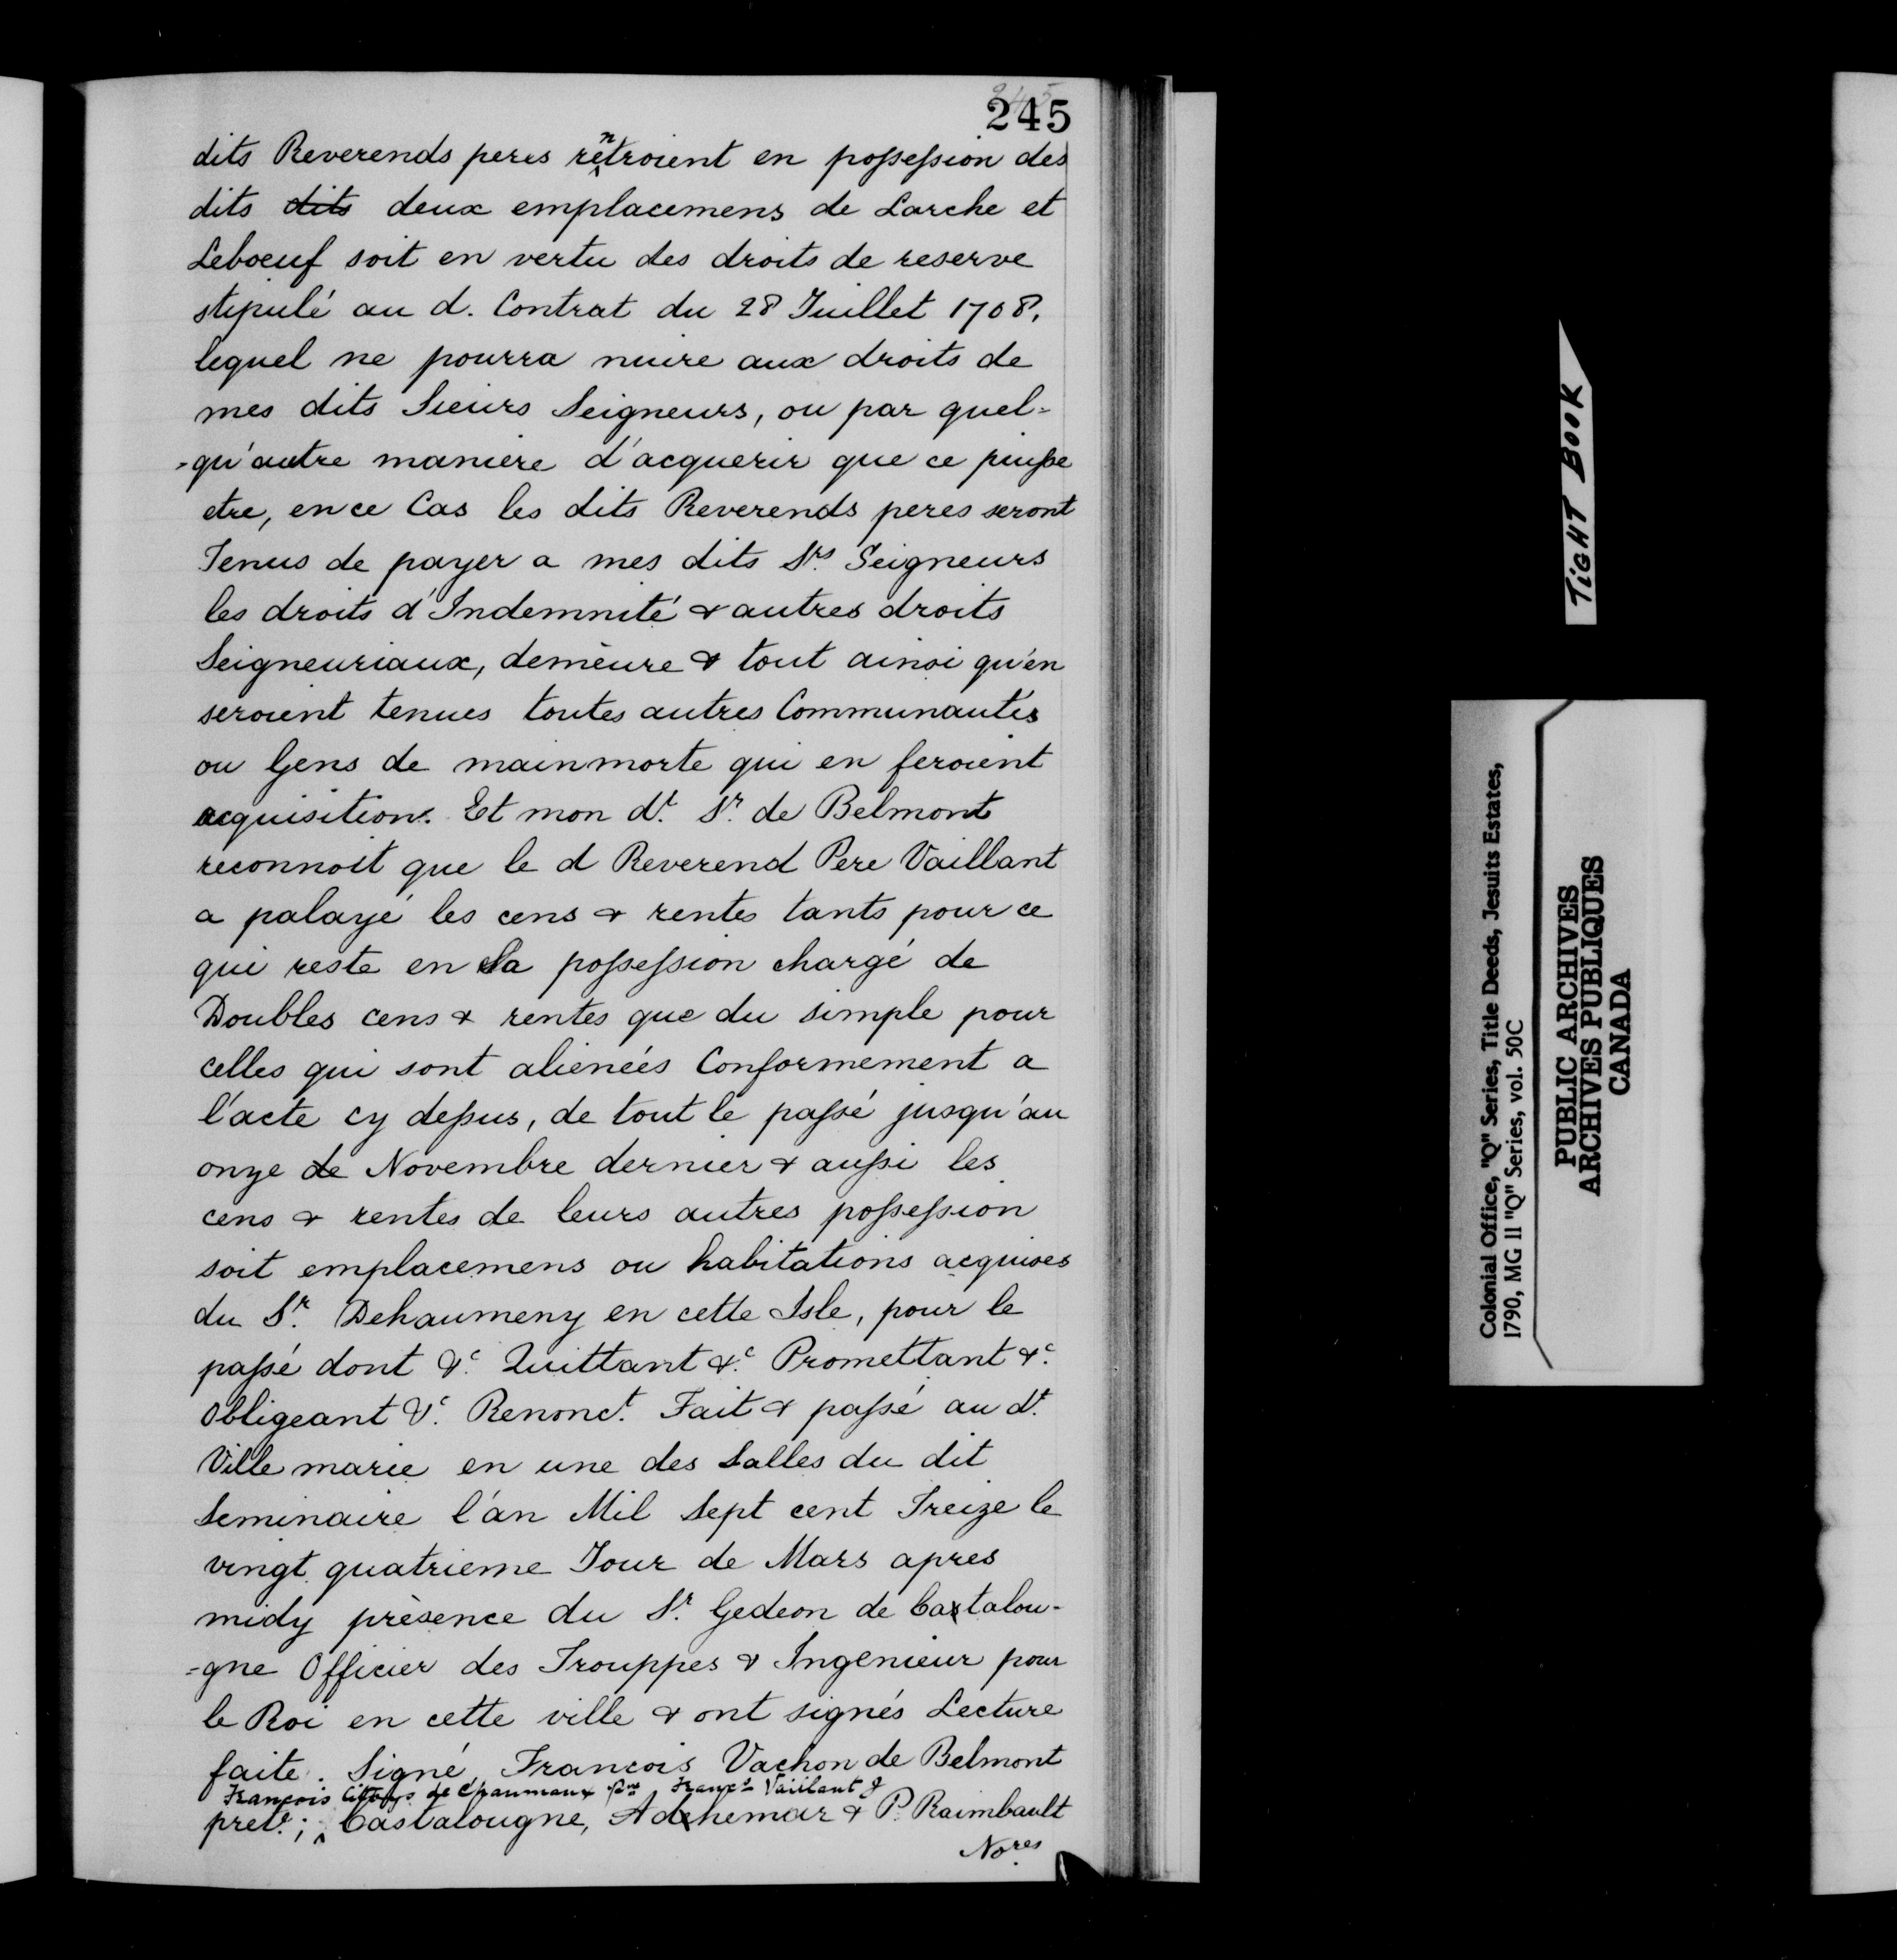 245
dits Reverends peres rentroient en possession des
dits dits deux emplacemens de Larche et
Leboeuf soit en vertu des droits de reserve
stipulé au d. Contrat du 28 Juillet 1708.
lequel ne pourra nuire aux droits de
mes dits Sieurs Seigneurs, ou par quel=
=qu'autre maniere d'acquerir que ce puisse
etre, en ce Cas les dits Reverends peres seront
Tenus de payer a mes dits Srs. Seigneurs
les droits d'Indemnité & autres droits
Seigneuriaux, demeure & tout ainsi qu'en
seroient tenues toutes autres Communautés
ou Gens de mainmorte qui en feroient
acquisition. Et mon dt. Sr. de Belmont
reconnoit que le d Reverend Pere Vaillant
a palayé les cens & rentes tants pour ce
qui reste en Sa possession chargé de
Doubles cens & rentes que du simple pour
celles qui sont alienées Conformement a
l'acte cy dessus, de tout le passé jusqu'au
onze de Novembre dernier & aussi les
cens & rentes de leurs autres possession
soit emplacemens ou habitations acquises
du Sr. Dehaumeny en cette Isle, pour le
passé dont &c. Quittant &c. Promettant &c.
Obligeant &c. Renonct. Fait & passé au dt.
Ville marie en une des Salles du dit
Seminaire l'an Mil Sept cent Treize le
vingt quatrieme Jour de Mars apres
midy présence du Sr. Gedeon de Castalou-
=gne Officier des Trouppes & Ingenieur pour
le Roi en cette ville & ont signés Lecture
faite. Signé, Francois Vachon de Belmont
François de Chaumaux Franc. Vaillant J
pretr.; Castalougne, Adhemar & P. Raimbault
Nores.
TIGHT BOOK
Colonial Office, "Q" Series, Title Deeds, Jesuits Estates,
1790, MG 11 "Q" Series, vol. 50C
PUBLIC ARCHIVES
ARCHIVES PUBLIQUES
CANADA